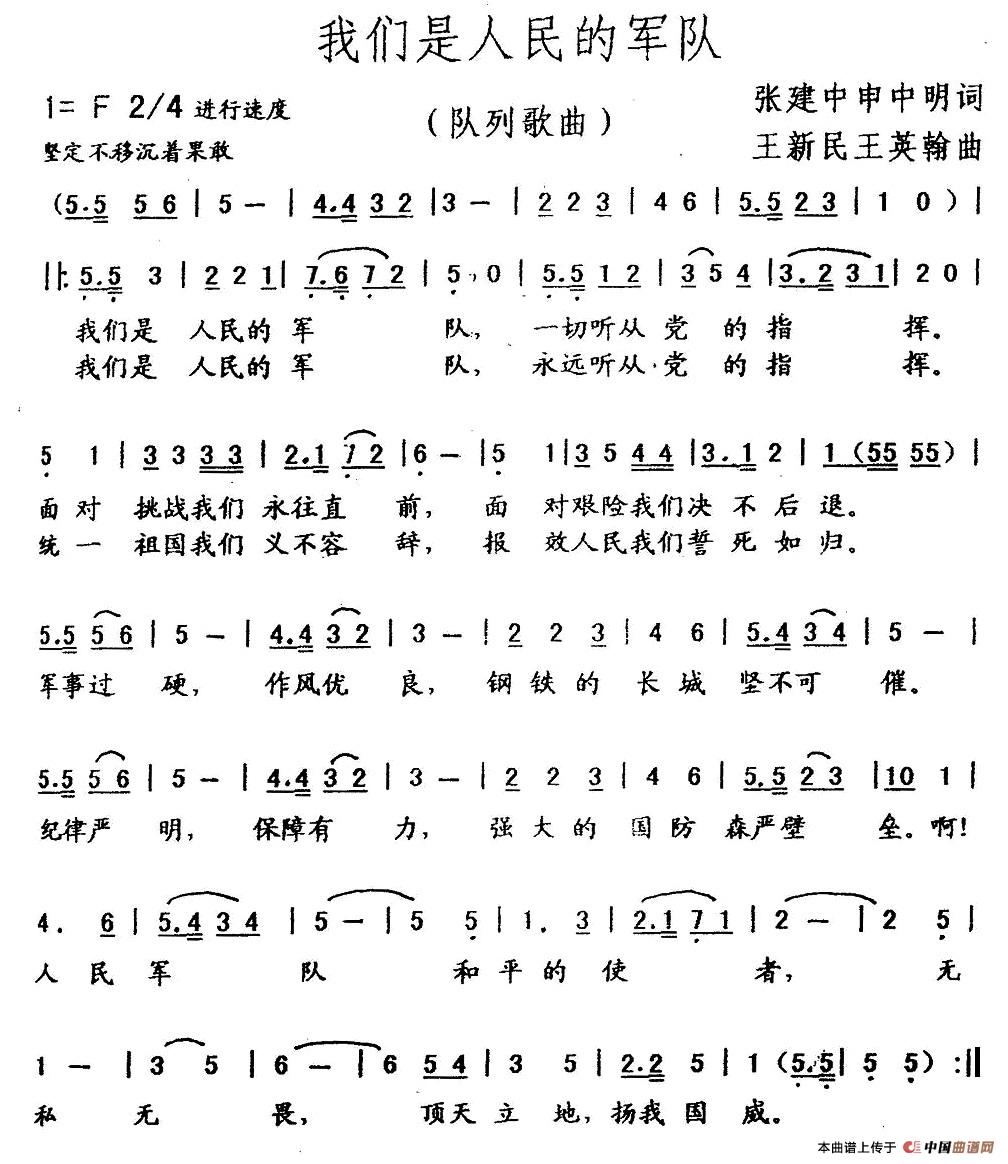 我们是人民的军队
1= F 2/4 进行速度
（队列歌曲）
张建中申中明词
坚定不移沉着果敢
王新民王英翰曲
(5.5 5 6 | 5 — | 4.4 3 2 | 3 — | 2 2 3 | 4 6 | 5.5 2 3 | 1 0 ) |
|: 5.5 3 | 2 2 1 | 7.6 7 2 | 5 , 0 | 5.5 1 2 | 3 5 4 | 3.2 3 1 | 2 0 |
我们是 人民的 军 队， 一切听从 党 的 指 挥。
我们是 人民的 军 队， 永远听从 党 的 指 挥。
5 1 | 3 3 3 3 | 2.1 7 2 | 6 — | 5 1 | 3 5 4 4 | 3.1 2 | 1 (55 55) |
面 对 挑战我们 永往直 前， 面 对艰险我们决 不 后 退。
统 一 祖国我们 义不容 辞， 报 效人民我们誓 死 如 归。
5.5 5 6 | 5 — | 4.4 3 2 | 3 — | 2 2 3 | 4 6 | 5.4 3 4 | 5 — |
军事过 硬， 作风优 良， 钢 铁 的 长 城 坚不可 催。
5.5 5 6 | 5 — | 4.4 3 2 | 3 — | 2 2 3 | 4 6 | 5.5 2 3 | 10 1 |
纪律严 明， 保障有 力， 强 大 的 国 防 森严壁 垒。啊！
4 . 6 | 5.4 3 4 | 5 — | 5 5 | 1 . 3 | 2.1 7 1 | 2 — | 2 5 |
人 民 军 队 和 平 的 使 者， 无
1 — | 3 5 | 6 — | 6 5 4 | 3 5 | 2.2 5 | 1 (5.5 | 5 5) :||
私 无 畏， 顶天 立 地，扬我 国 威。
本曲谱上传于 中国曲谱网